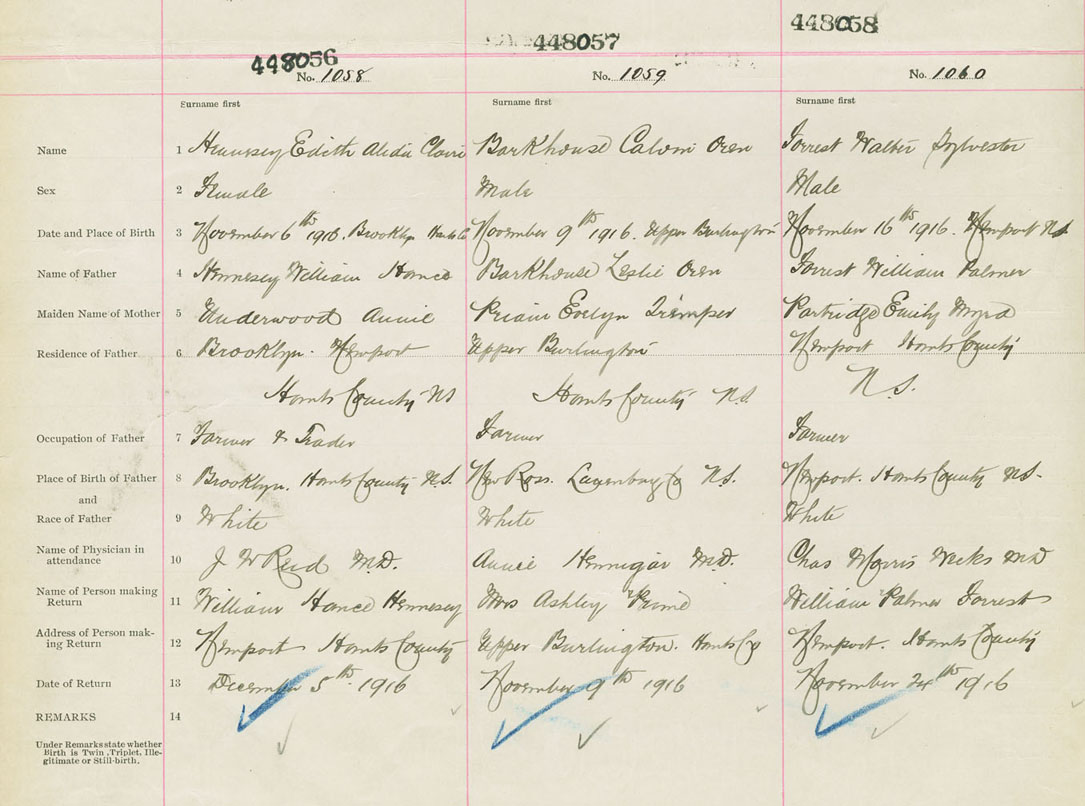 448056 448057 448058
No. 1058 No. 1059 No. 1060
Surname first Surname first Surname first
Name 1 Hennesey Edith Alida Barkhouse Oren Forrest Walter Sylvester
Sex 2 Female Male Male
Date and Place of Birth 3 November 6th 1916. Brooklyn Hants Co November 9th 1916. Upper Burlington November 16th 1916. Newport NS
Name of Father 4 Hennesey William Hance Barkhouse Leslie Oren Forrest William Palmer
Maiden Name of Mother 5 Underwood Annie Evelyn Trimper Partridge Emily Myra
Residence of Father 6 Brooklyn. Newport Upper Burlington Newport Hants County
Hants County NS Hants County N.S. N.S.
Occupation of Father 7 Farmer & Trader Farmer Farmer
Place of Birth of Father 8 Brooklyn. Hants County N.S. New Ross. Co N.S. Newport. Hants County NS.
and
Race of Father 9 White White White
Name of Physician in
attendance 10 J W Reid M.D. Annie Hennigar M.D. Chas Morris Weeks MD
Name of Person making
Return 11 William Hance Hennesey Mrs Ashley William Palmer Forrest
Address of Person mak-
ing Return 12 Newport Hants County Upper Burlington. Hants Co Newport. Hants County
Date of Return 13 December 5th 1916 November 9th 1916 November 24th 1916
REMARKS 14
Under Remarks state whether
Birth is Twin, Triplet, Ille-
gitimate or Still-birth.